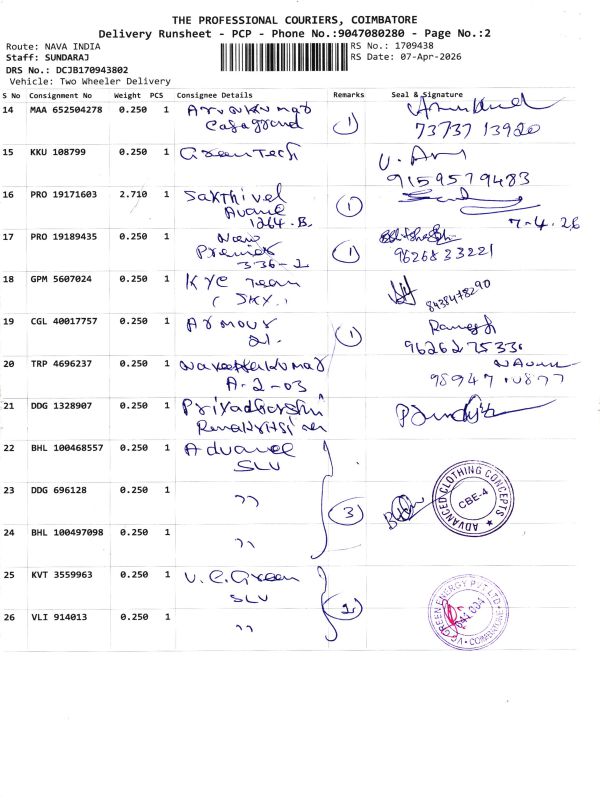 THE PROFESSIONAL COURIERS, COIMBATORE
Delivery Runsheet - PCP - Phone No.:9047080280 - Page No.:2
Route: NAVA INDIA RS No.: 1709438
Staff: SUNDARAJ RS Date: 07-Apr-2026
DRS No.: DCJB170943802
Vehicle: Two Wheeler Delivery
S No Consignment No Weight PCS Consignee Details Remarks Seal & Signature
14 MAA 652504278 0.250 1 1
73737 13920
15 KKU 108799 0.250 1 Green Tech
9159579483
16 PRO 19171603 2.710 1 Sakthivel 1
1264.B. 7-4.26
17 PRO 19189435 0.250 1 New 1
336-2 9626833221
18 GPM 5607024 0.250 1 KYC Team
(SKY.) 8438478290
19 CGL 40017757 0.250 1 Armour 1 Ramesh
21.
20 TRP 4696237 0.250 1
A-2-03
21 DDG 1328907 0.250 1 Priyadharshni
22 BHL 100468557 0.250 1 Advanced
SLV
23 DDG 696128 0.250 1 " 3 ADVANCED CLOTHING CONCEPTS CBE-4
24 BHL 100497098 0.250 1 "
25 KVT 3559963 0.250 1 V.C. Green
SLV
26 VLI 914013 0.250 1 " 2 GREEN ENERGY PVT LTD COIMBATORE 641 004